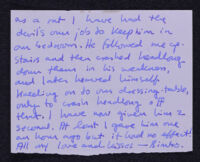 as a rat I have had the
devil's own job to keep him in
our bedroom. He followed me up-
stairs and then crashed headlong
down them in his weakness,
and later heaved himself
 on to our dressing-table,
only to crash headlong off
that. I have now given him a
second. At least I gave him one
an hour ago but it had no effect!
All my love and kisses —